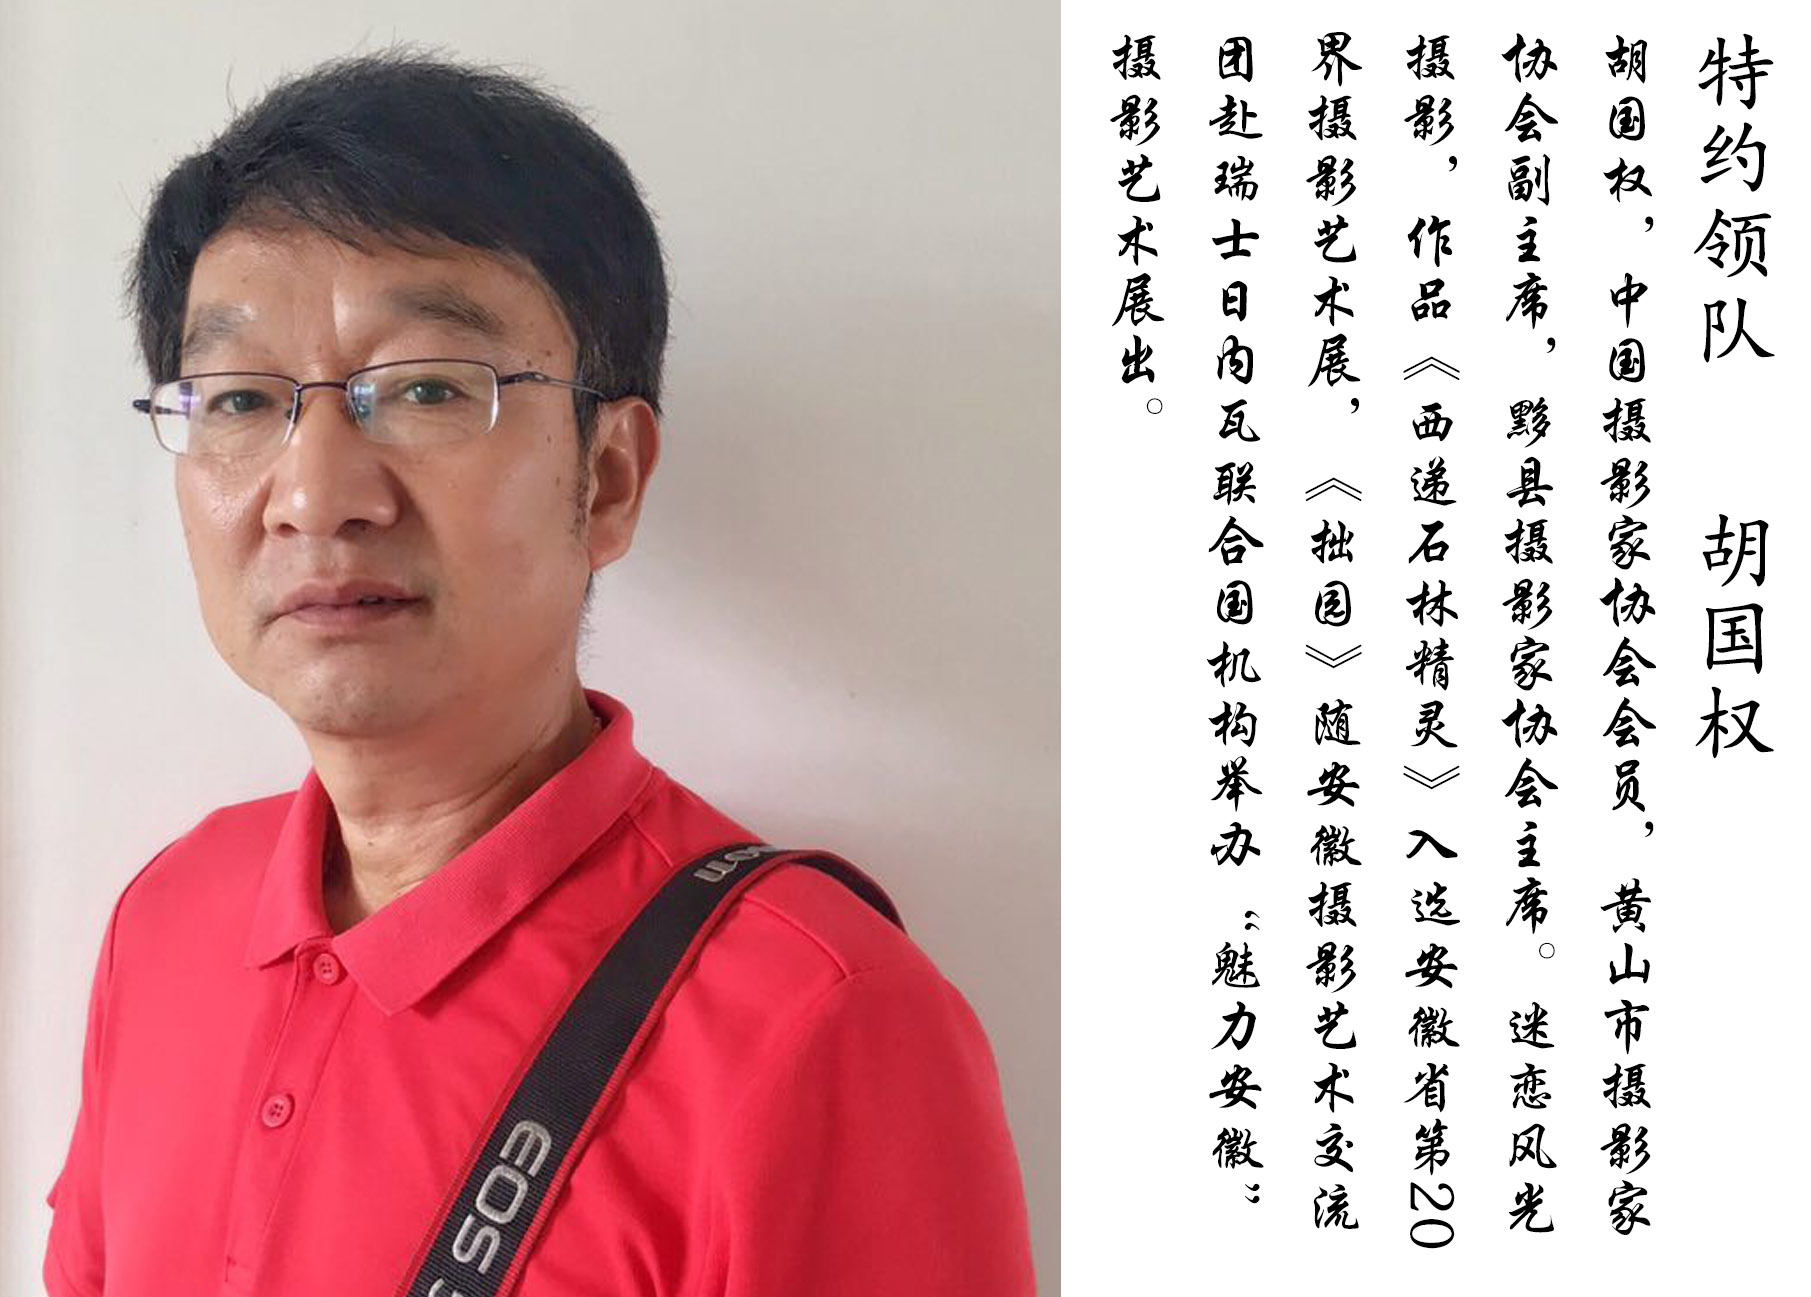 特约领队 胡国权
胡国权，中国摄影家协会会员，黄山市摄影家
协会副主席，黟县摄影家协会主席。迷恋风光
摄影，作品《西递石林精灵》入选安徽省第20
界摄影艺术展，《拙园》随安徽摄影艺术交流
团赴瑞士日内瓦联合国机构举办“魅力安徽”
摄影艺术展出。
EOS